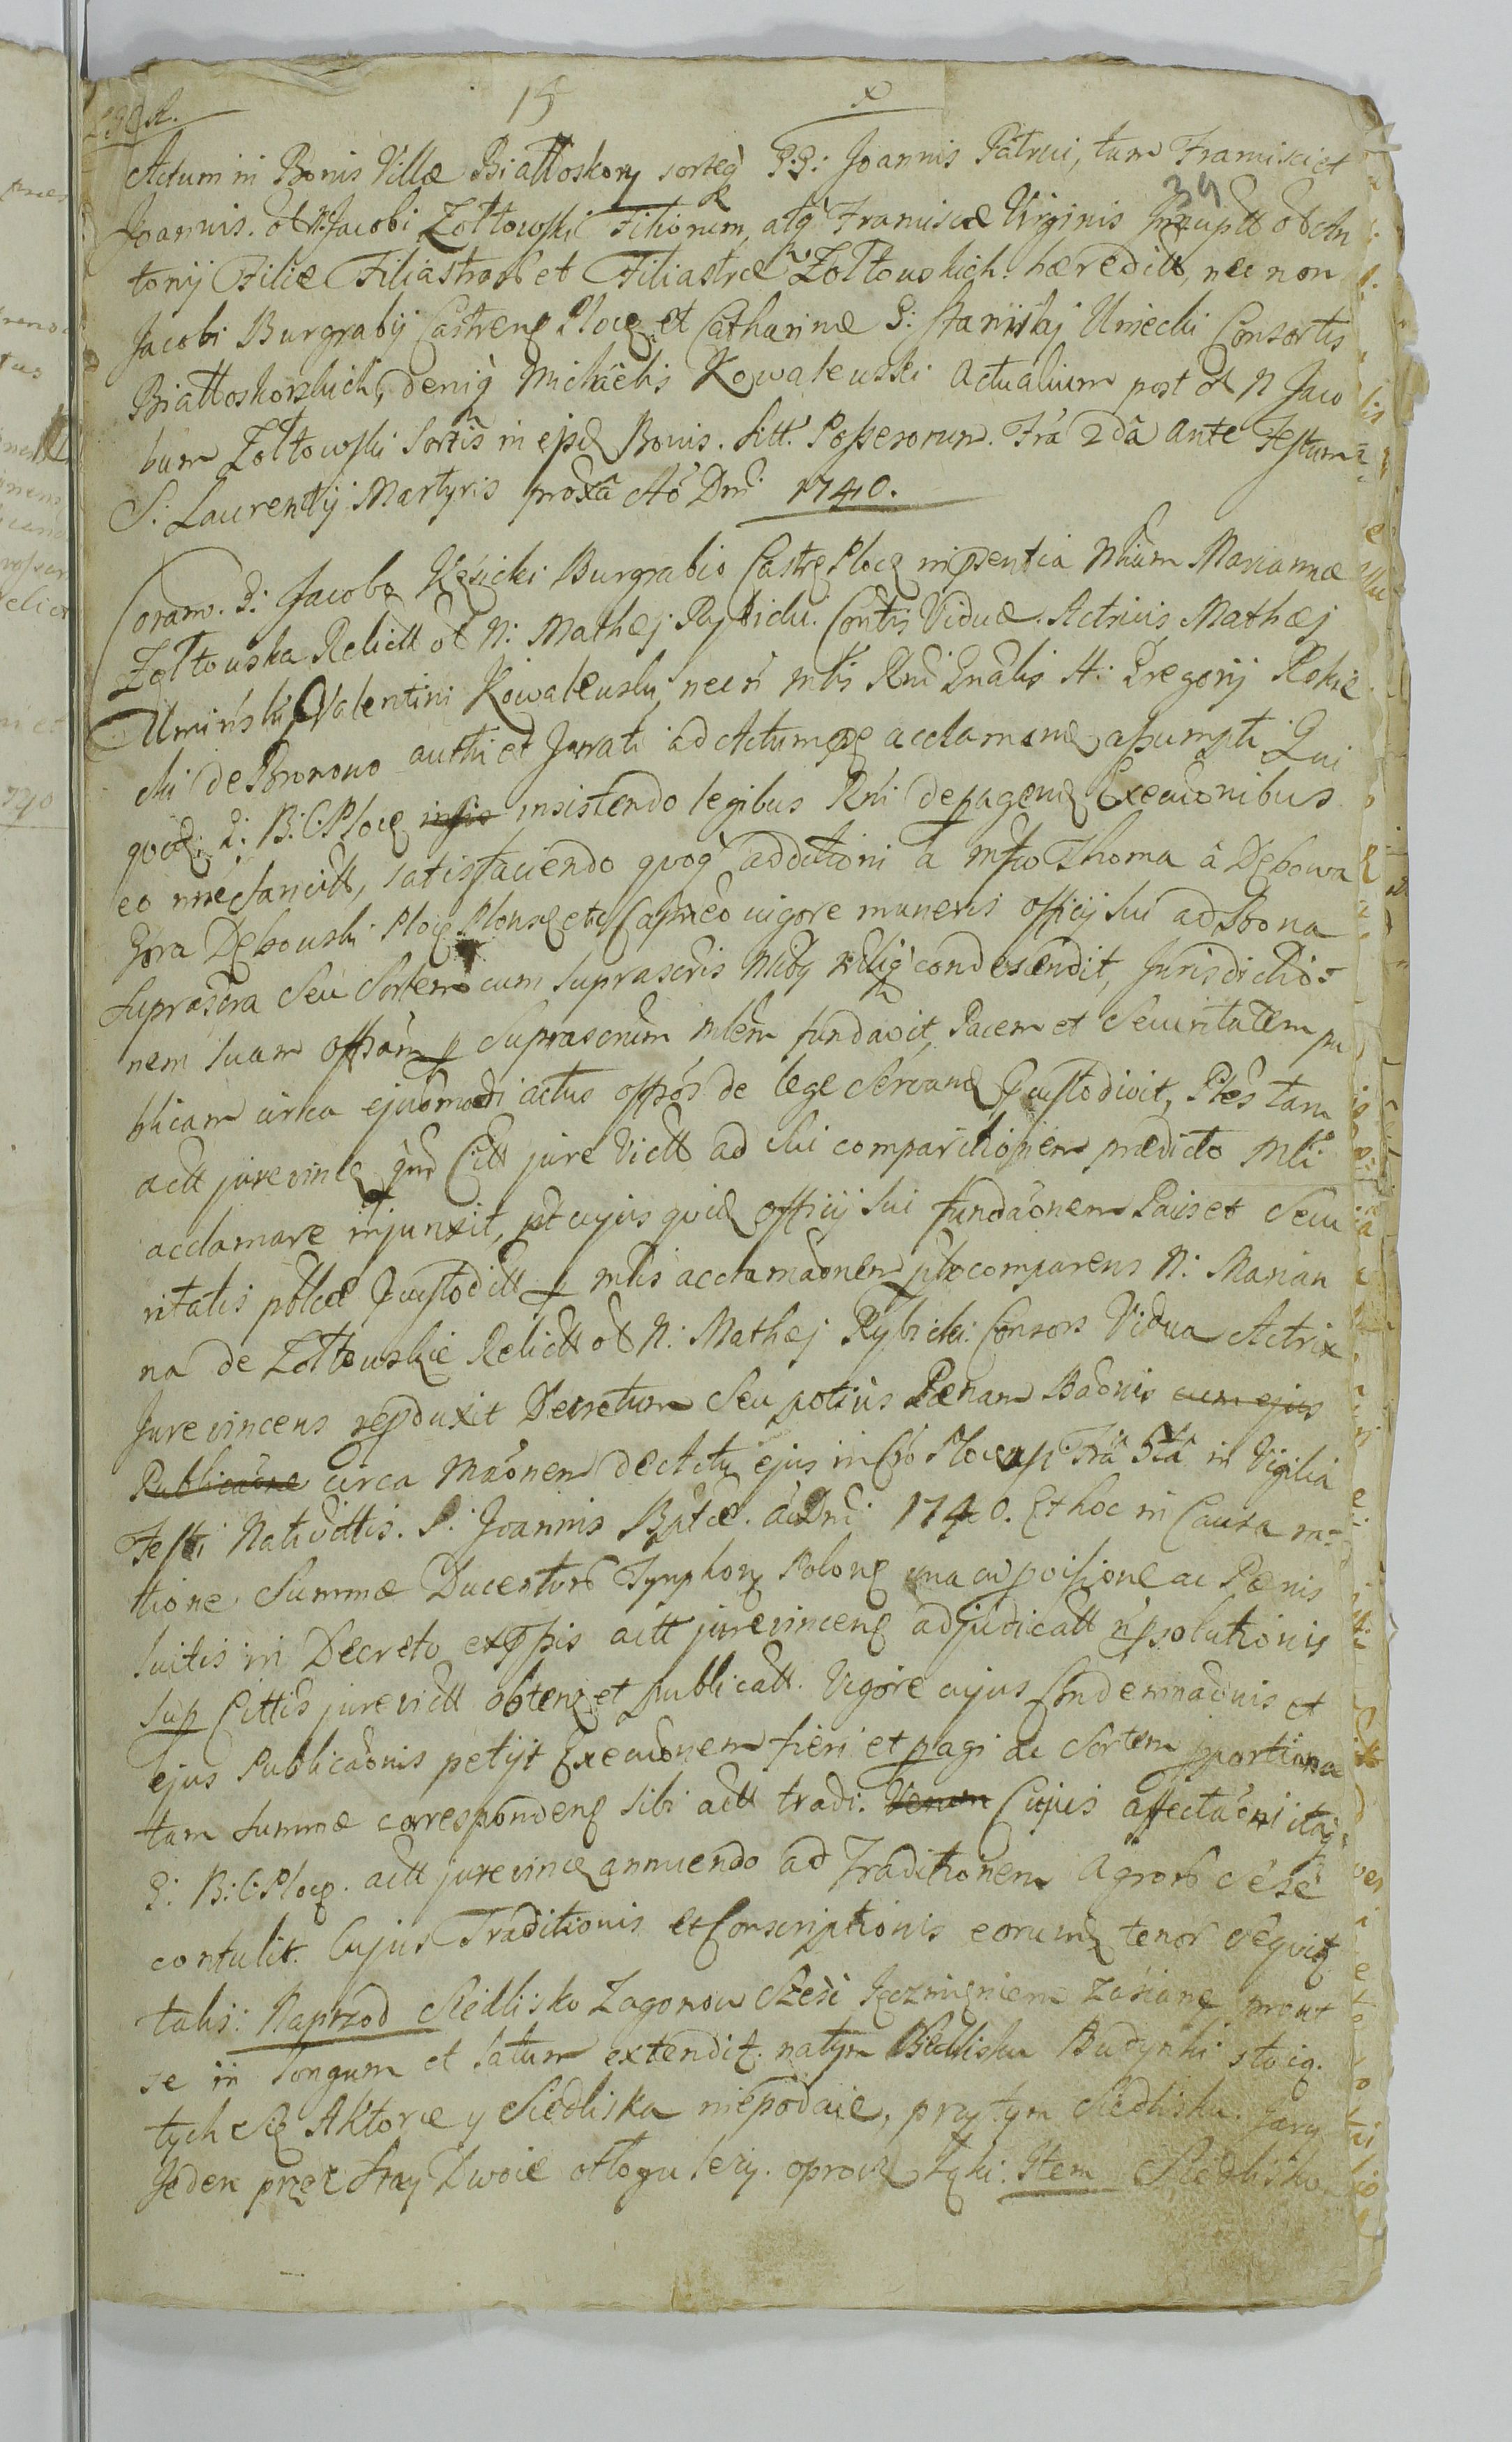 15 x
39
Actum in Bonis Villæ Białłoskory sorteq̀ G:G: Joannis Patrui, tum Francisci et
Joannis. ol N: Jacobi Zołtowski Filiorum, atq̀ Franciscæ Virginis Innuptt ol An
tonij Filiæ Filiastror̃ et Filiastræ Zołtowskich hæreditt, nec non
Jacobi Burgrabij Castreñ Ploceñ et Catharinæ G: Stanislaj Umiecki Consortis
Białłoskorskich, deniq̀ Michaelis Kowalewski Actualium post ol N Jaco
bum Zołtowski Sortis in ejsdẽ Bonis. Sitt. Possessorum. Fra 2da ante Festum
S: Laurentij Martyris proxa Ao Dni 1740.
Coram. G: Jacobo Kęsicki Burgrabio Castreñ Ploceñ in pñsentia Nbium Mariannæ
Zołtowska Relictt ol N: Mathæj Rybicki. Contis Viduæ. Actricis Mathæj
Umiński, Valentini Kowalewski, nec n̄ mtis Rni Gnalis H: Gregorij Rokic
ki de Bronowo authi et Jurati ad Actum pñ acclamand assumpti Qui
quid: G: B: C: Ploceñ insistendo legibus Rni de pagend Executionibus
eo nne Sancitt, satisfaciendo quoq̀ additioni a Mfco Thoma a Dębowa
Góra Dębowski Ploceñ Plonsceñ etc Capneo vigore muneris officij Sui ad Bona
Suprascra Seu Sortem cum suprascris Nblbq relig condescendit, Jurisdictio=
nem Suam offsam p suprascrum mlem fundavit, Pacem et Securitatem pu
blicam circa ejusmodi actus offsos de lege Servand Custodivit, Ptes tam
actt jurevinceñ qm Citt jure Victt ad Sui comparitionem prædicto Mli
acclamare injunxit, pt cujus quid officij Sui fundãonem Pacis et Secu
ritatis pblcæ Custoditt p mlis acclamaonem pto comparens N: Marian
na de Zołtowskie Relictt ol N: Mathæj Rybicki Consors Vidua Actrix
Jurevincens repduxit Decretum Seu potius Pænam Baõnis cum ejus
Publicaõne circa Maõnem de Actu ejus in Cro Plocen Fra 5ta in Vigilia
Festi Nativittis. S: Joannis Bptæ. ao Dni 1740. Et hoc in Causa ra=
tione Summæ Ducentor̃ Tynphor̃ Polonẽ una cu pvisione ac Pænis
luitis in Decreto exppis actt jurevinceñ adjudicatt n̄ psolutionis
Sup Cittis jurevictt obteñ et publicatt. Vigore cujus Condemnaõnis et
ejus Publicaõnis petijt Execuonem fieri et pagi ac Sortem pportiona
tam Summæ correspondeñ Sibi actt tradi. Cujus affectaõni itaq̀
G: B: C: Ploceñ. actt jurevinceñ annuendo ad Traditionem Agror̃ Sese
contulit. Cujus Traditionis et Conscriptionis eorund tenor Sequit
talis: Naprzod Siedlisko Zagonow Sześć Jęczmieniem zasiane prout
se in longum et latum extendit. na tym Siedlisku Budynki stoią.
tych Się Aktorce y Siedliska niepodaie, przy tym Siedlisku. Gary
Jeden przez Stay Dwoie odłogu leży. oprocz Łąki. Item Siedlisko